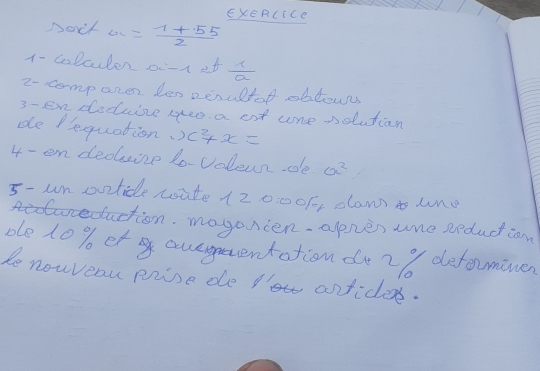 EXERCICE
soit a = 1+55 / 2
1 - calculer a-1 et 1/a
2- comparer les résultat obtenus
3 - En deduire que a est une solution
de l'equation x²+x =
4 - en deduire la valeur de a²
5 - un article coûte 12000F dans une
reduction. magasien. après une reduction
de 10% et augmentation de 2% determiner
le nouveau prise de l' article.